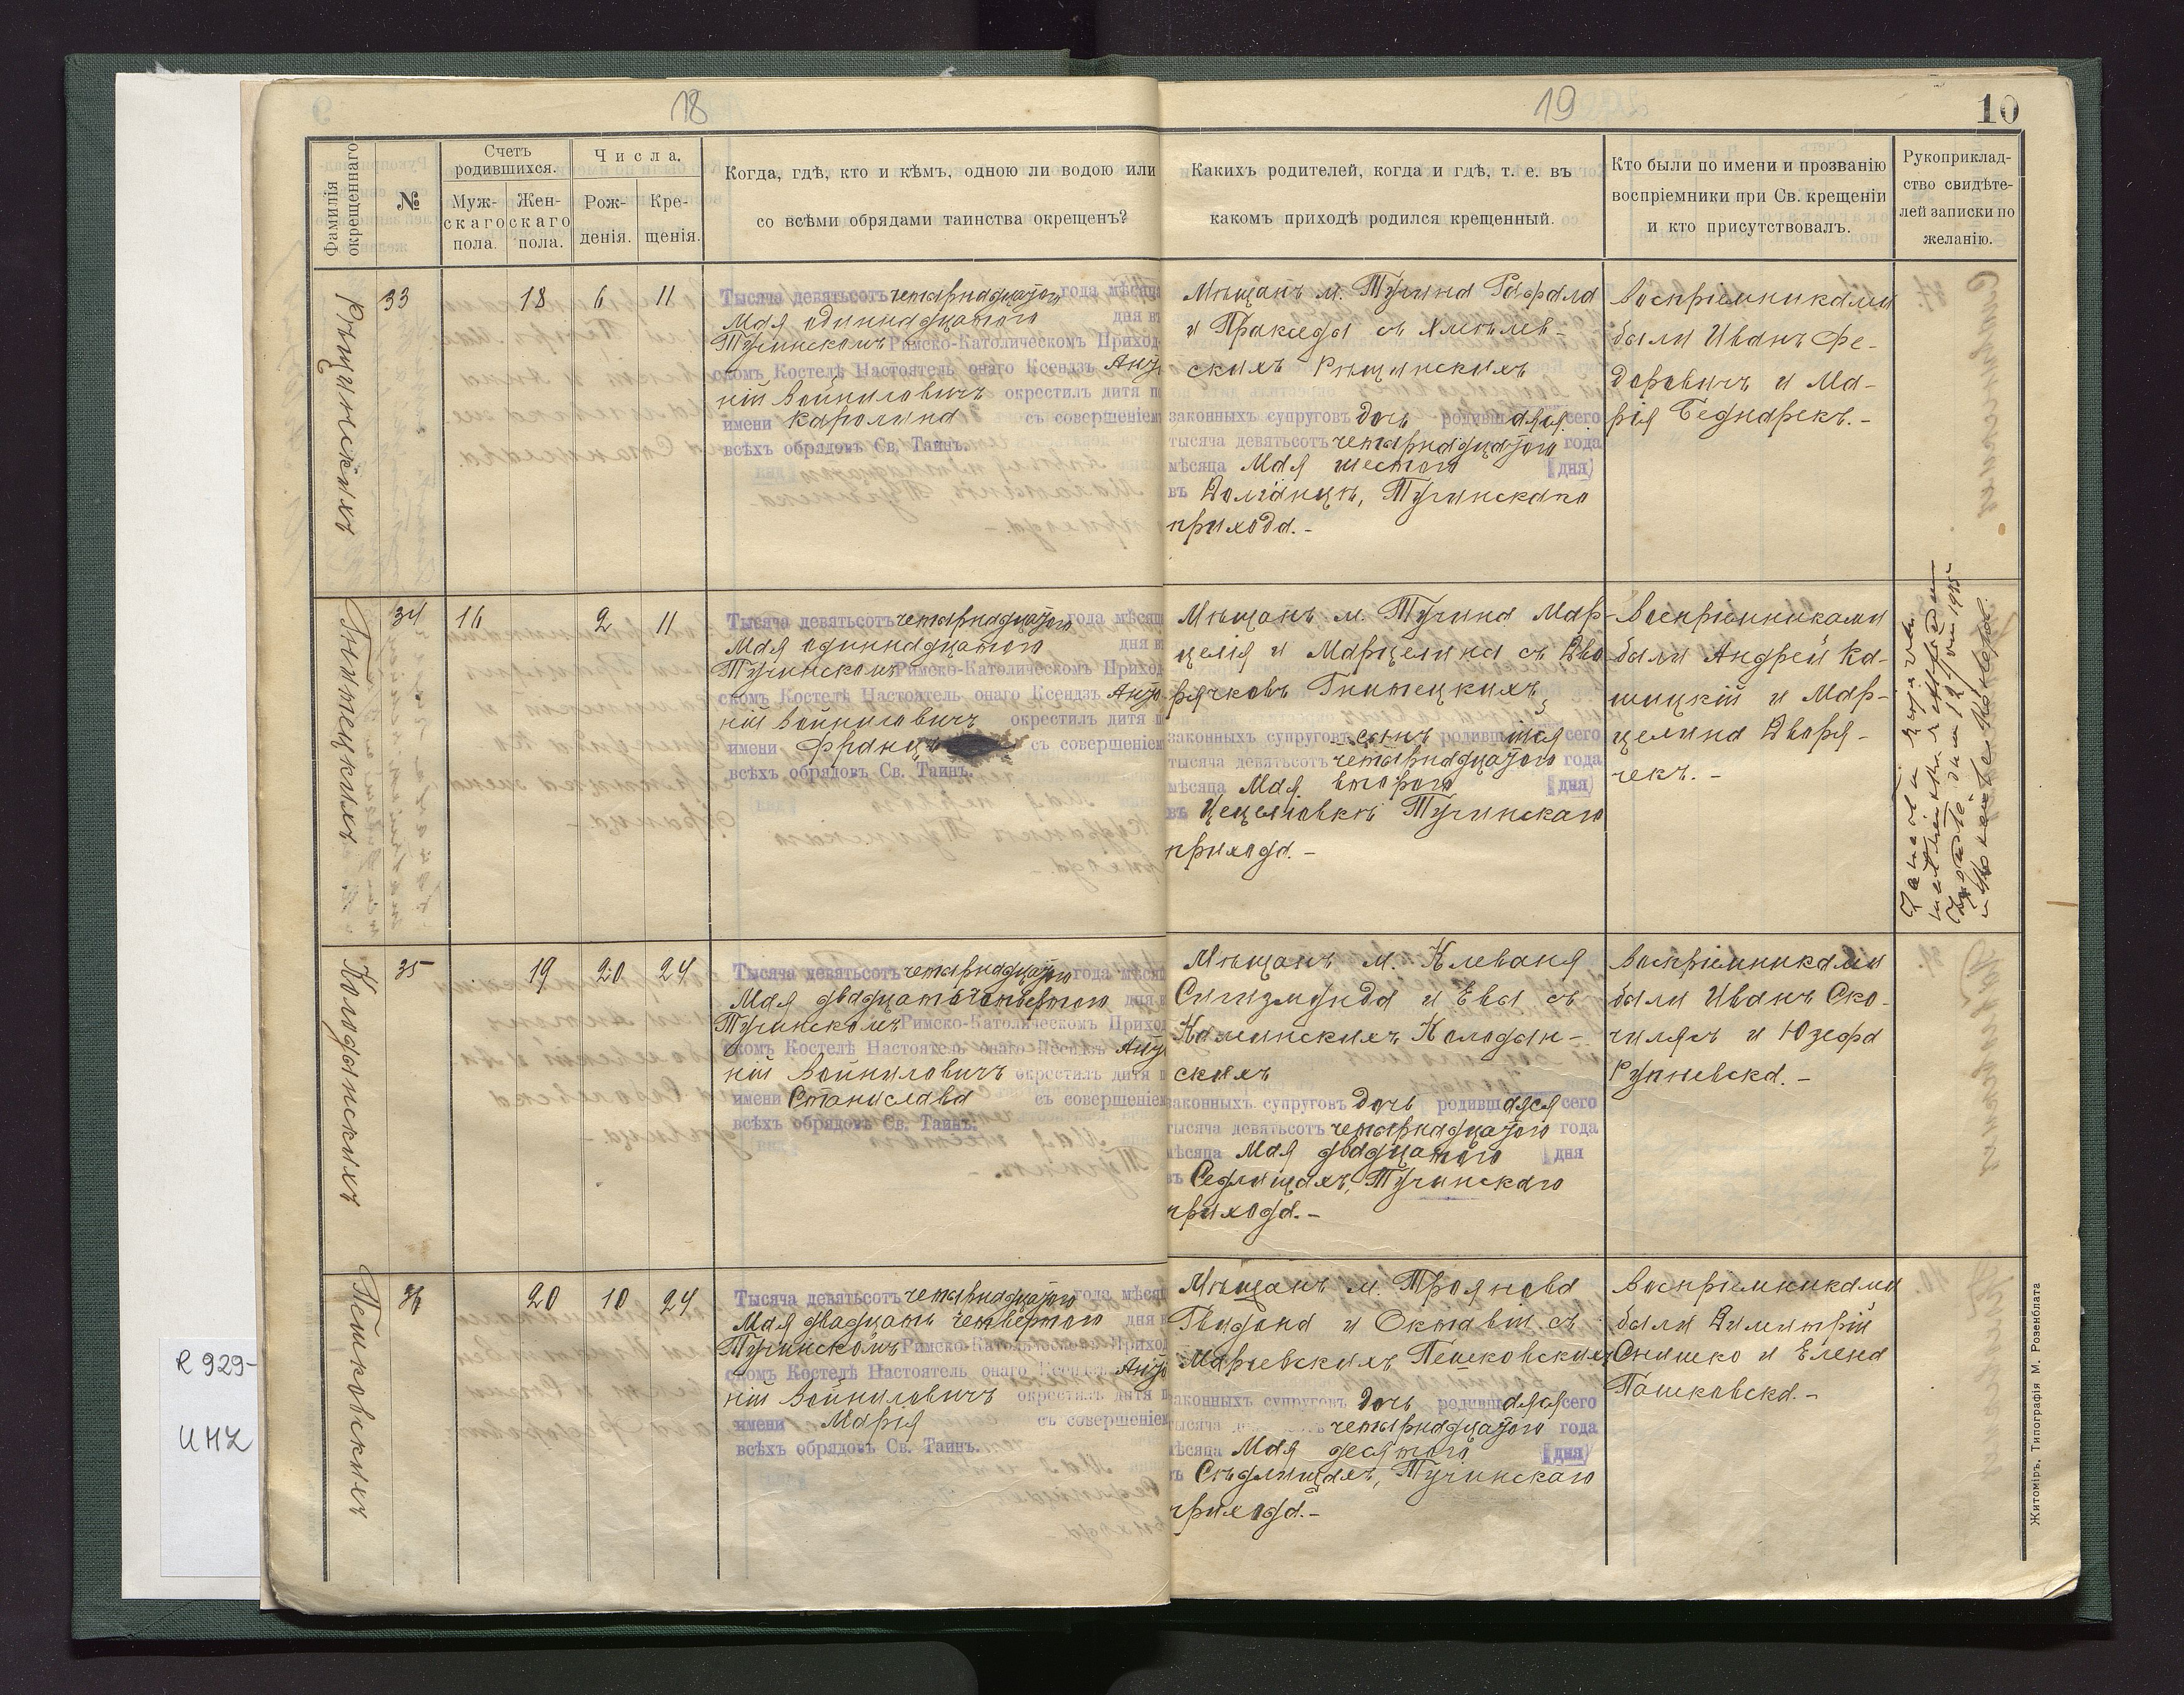 18
19
10
Фамилія окрещеннаго
№
Счетъ родившихся.
Муж-
скаго
пола.
Жен-
скаго
пола.
Числа.
Рож-
денія.
Кре-
щенія.
Когда, гдѣ, кто и кѣмъ, одною ли водою или
со всѣми обрядами таинства окрещенъ?
Какихъ родителей, когда и гдѣ, т. е. въ
какомъ приходѣ родился крещенный.
Кто были по имени и прозванію
воспріемники при Св. крещеніи
и кто присутствовалъ.
Рукоприклад-
ство свидѣте-
лей записки по
желанію.
Рѣщинскихъ
33 18 6 11
Тысяча девятьсотъ четырнадцатого года мѣсяца
Мая одиннадцатого дня въ
Тучинскомъ Римско-Католическомъ Приход-
скомъ Костелѣ Настоятель онаго Ксендзъ Анто
ній Войниловичъ окрестилъ дитя п
имени Каролина съ совершеніем
всѣхъ обрядовъ Св. Таинъ.
Мѣщанъ м. Тучина Рафала
и Пракседы съ Хмѣлев-
скихъ Рѣщинскихъ
законныхъ супруговъ дочь родившаяся сего
тысяча девятьсотъ четырнадцатого года
мѣсяца Мая шестого дня
въ Долганцѣ, Тучинскаго
прихода.-
Воспріемниками
были Иванъ Фе-
доровичъ и Ма-
рія Беднарекъ.-
Гнитецкихъ
34 16 2 11
Тысяча девятьсотъ четырнадцатого года мѣсяц
Мая одиннадцатого дня в
Тучинскомъ Римско-Католическомъ Приход
скомъ Костелѣ Настоятель онаго Ксендзъ Анто
ній Войниловичъ окрестилъ дитя п
имени Францъ съ совершеніем
всѣхъ обрядовъ Св. Таинъ.
Мѣщанъ м. Тучина Мар-
целія и Марцелина съ Дво
рячковъ Гнитецкихъ
законныхъ супруговъ сынъ родившійся сего
тысяча девятьсотъ четырнадцатого года
мѣсяца Мая второго дня
въ Цецеловкѣ Тучинскаго
прихода.-
Воспріемниками
были Андрей Ка-
шицкій и Мар-
целина Дворя-
чекъ.-
Колодынскихъ
35 19 20 24
Тысяча девятьсотъ четырнадцатого года мѣсяц
Мая двадцать четвертого дня в
Тучинскомъ Римско-Католическомъ Приход
скомъ Костелѣ Настоятель онаго Ксендзъ Анто
ній Войниловичъ окрестилъ дитя п
имени Станислава съ совершеніем
всѣхъ обрядовъ Св. Таинъ.
Мѣщанъ м. Клеваня
Сигизмунда и Евы съ
Калинскихъ Колодын-
скихъ
законныхъ супруговъ дочь родившаяся сего
тысяча девятьсотъ четырнадцатого года
мѣсяца Мая двадцатого дня
въ Седлищахъ, Тучинскаго
прихода.-
Воспріемниками
были Иванъ Ско-
чилясъ и Юзефа
Рупневска.-
Пешковскихъ
36 20 10 24
Тысяча девятьсотъ четырнадцатого года мѣсяц
Мая двадцать четвертого дня в
Тучинскомъ Римско-Католическомъ Приход
скомъ Костелѣ Настоятель онаго Ксендзъ Анто
ній Войниловичъ окрестилъ дитя п
имени Марія съ совершеніем
всѣхъ обрядовъ Св. Таинъ.
Мѣщанъ м. Троянова
Гвидона и Октавіи съ
Марчевскихъ Пешковскихъ
законныхъ супруговъ дочь родившаяся сего
тысяча четырнадцатого года
мѣсяца Мая десятого дня
въ Сѣдлищахъ, Тучинскаго
прихода.-
Воспріемниками
были Димитрій
Онишко и Елена
Пашковска.-
Житоміръ, Типографія М. Розенблата
R 929-
UMZ